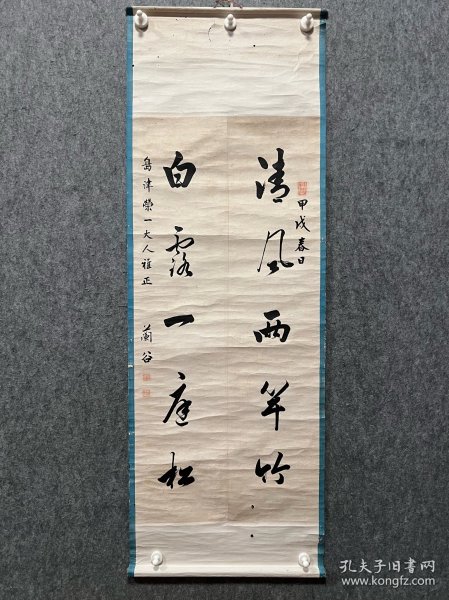 甲戌春日
清风两竿竹
白露一庭松
岛津荣一大人雅正
兰谷
孔夫子旧书网
www.kongfz.com